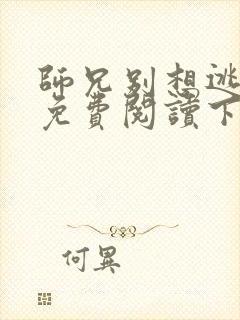 師兄別想逃
免費閱讀下
何異